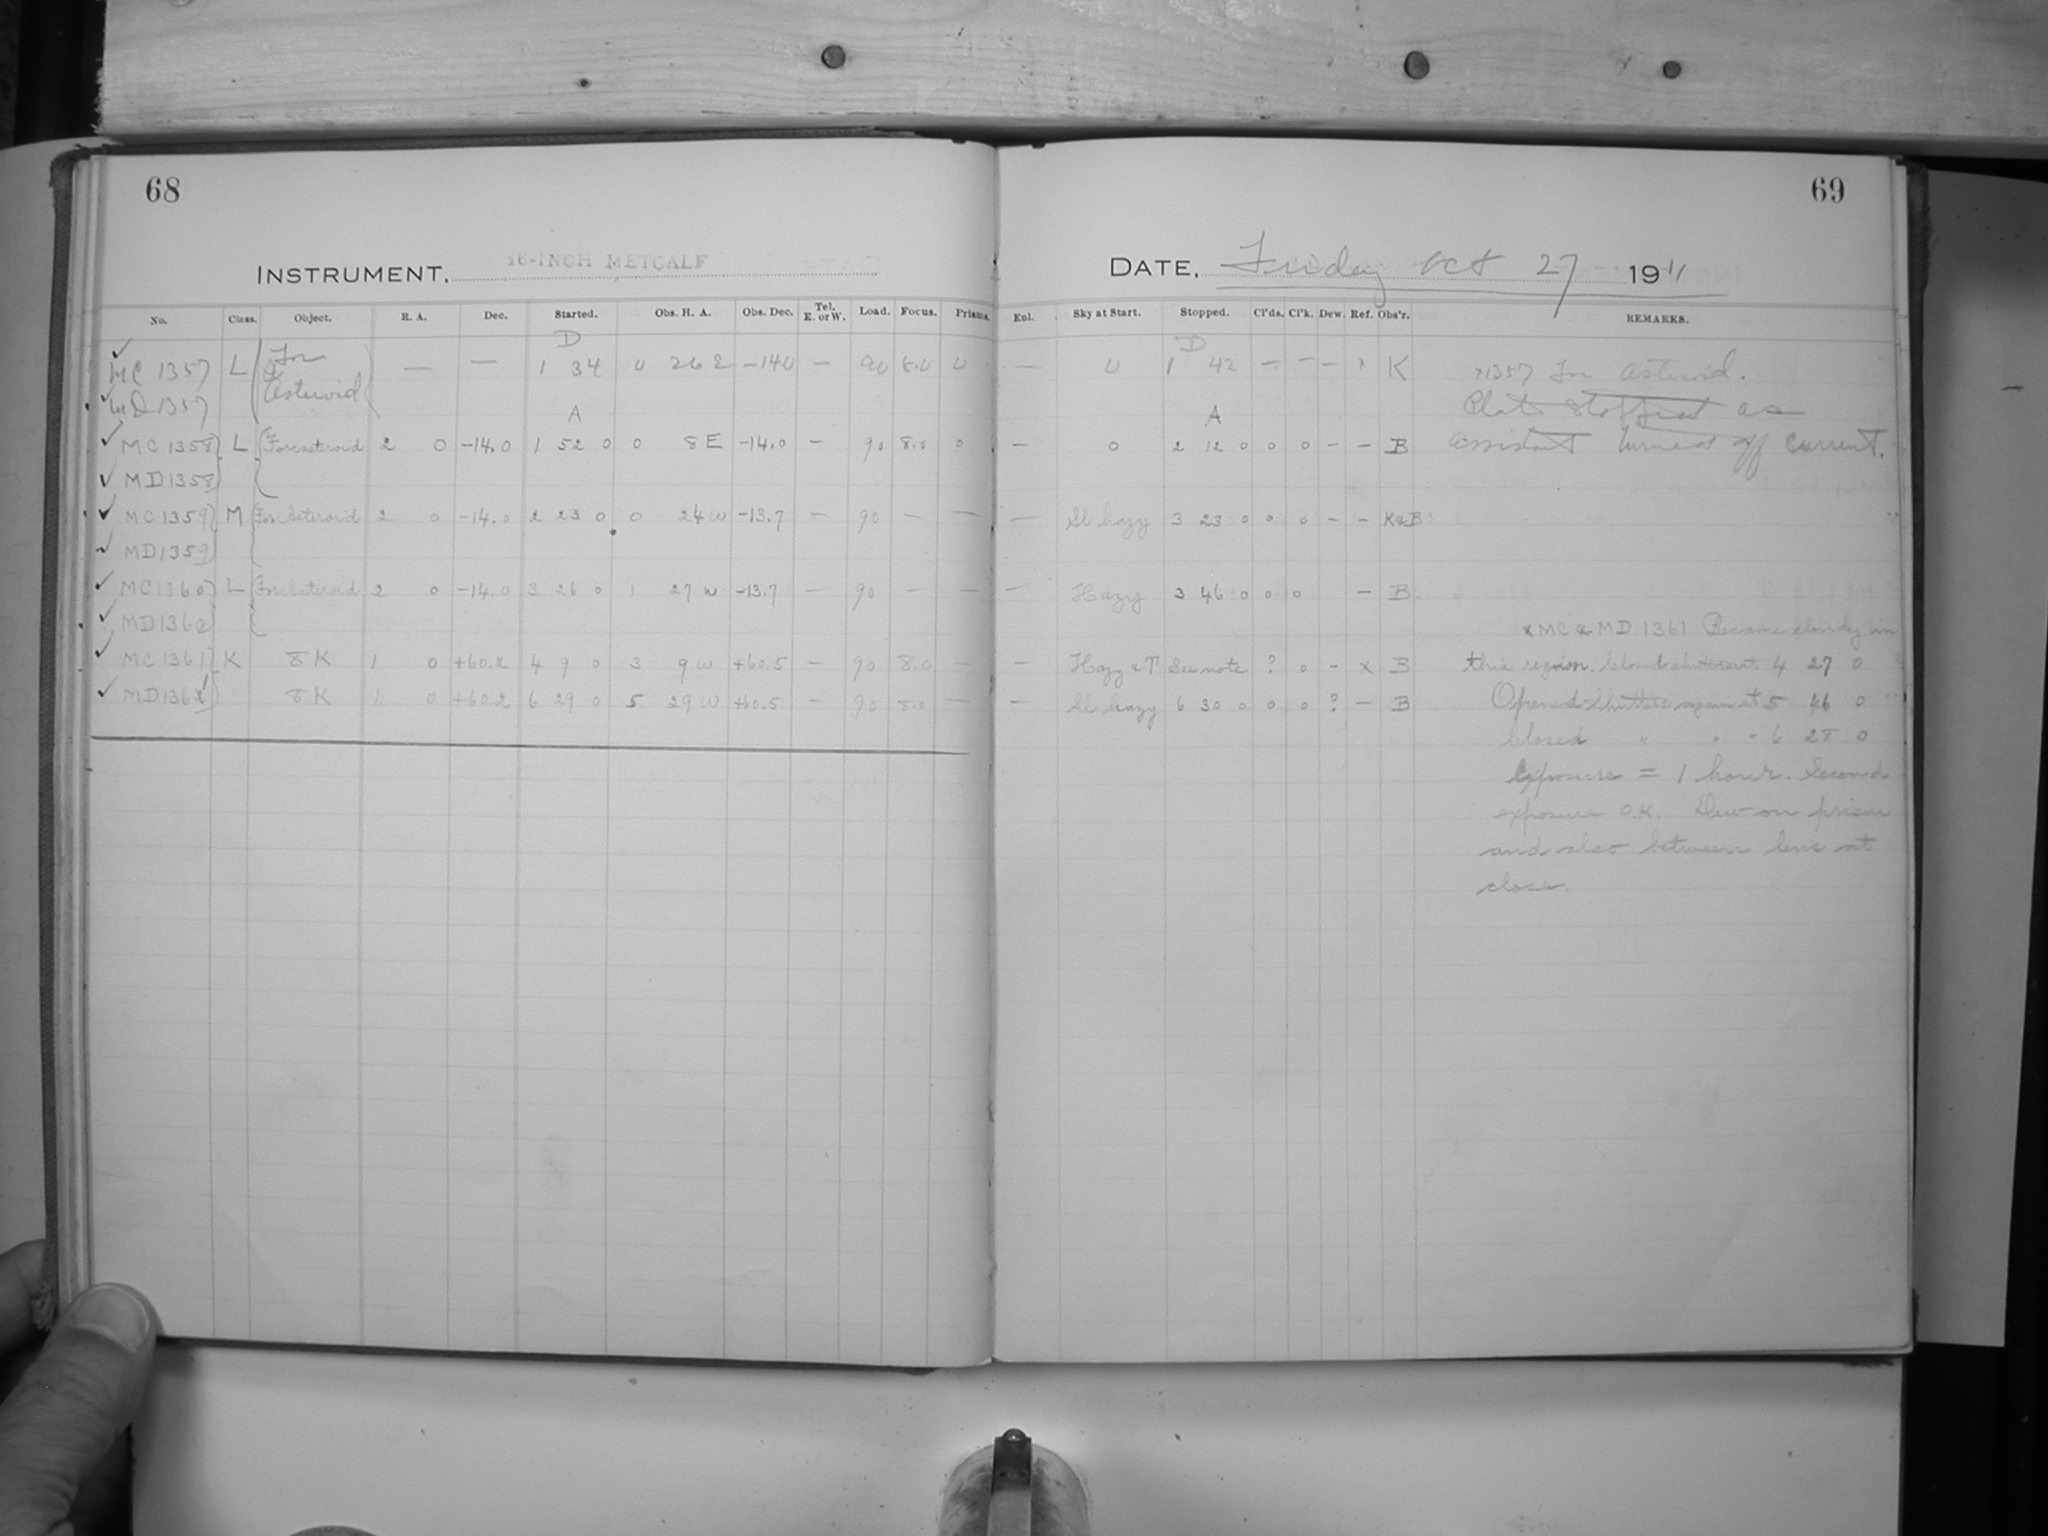 68
69
INSTRUMENT, 16-INCH METCALF
DATE, Friday Oct 27 1911
No. Class. Object. R. A. Dec. Started. Obs. H. A. Obs. Dec. Tel. E. or W. Load. Focus. Prisms.
Enl. Sky at Start. Stopped. Cl'ds. Cl'k. Dew. Ref. Obs'r. REMARKS.
D D
✓ MC 1357 L For Asteroid — — 1 34 0 26 E -14 0 — 90 8.0 0 — 0 1 42 — — — x K x1357 For asteroid.
✓ MD 1357 A A Plate stopped as
✓ MC 1358 L For asteroid 2 0 -14.0 1 52 0 0 8 E -14.0 — 90 8.0 0 — 0 2 12 0 0 0 — — B assistant turned off current.
✓ MD 1358
✓ MC 1359 M For Asteroid 2 0 -14.0 2 23 0 0 24 W -13.7 — 90 — — — Sl hazy 3 23 0 0 0 — — K&B
✓ MD 1359
✓ MC 1360 L For Asteroid 2 0 -14.0 3 26 0 1 27 W -13.7 — 90 — — — Hazy 3 46 0 0 0 — B
✓ MD 1360 x MC & MD 1361 Became cloudy in
✓ MC 1361 K 8 K 1 0 +60.2 4 9 0 3 9 W +60.5 — 90 8.0 — — Hazy & T See note ? 0 — x B this region. Closed shutters at 4 27 0
✓ MD 1361 8 K 1 0 +60.2 6 29 0 5 29 W +60.5 — 90 8.0 — — Sl hazy 6 30 0 0 0 ? — B Opened shutters again at 5 46 0
Closed " " " 6 28 0
Exposure = 1 hour. Second
exposure O.K. Dew on prism
and also between lens at
close.